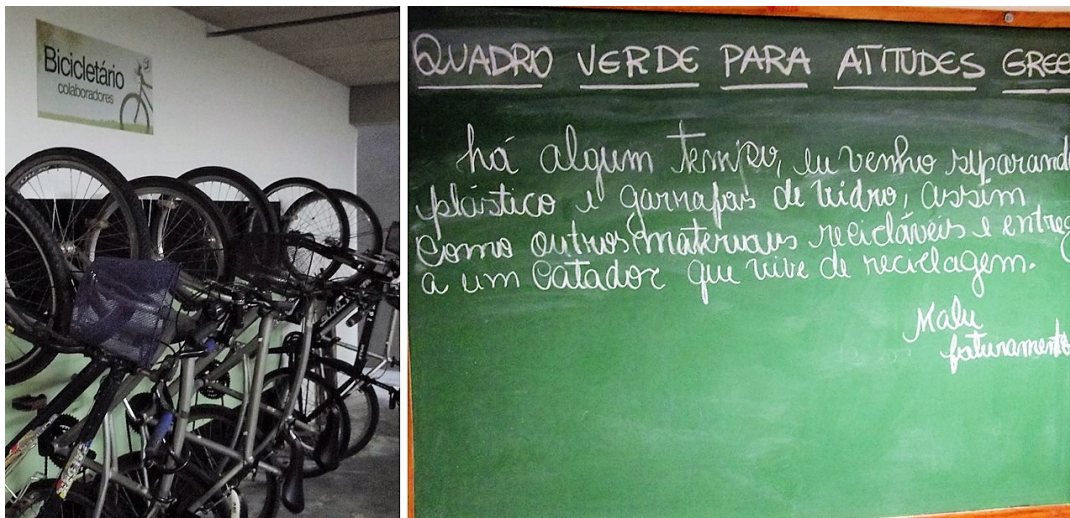 Bicicletário
colaboradores
QUADRO VERDE PARA ATITUDES GREE
há algum tempo, eu venho separand
plástico e garrafas de vidro, assim
como outros materiais recicláveis e entreg
a um catador que vive de reciclagem.
Malu
faturamento